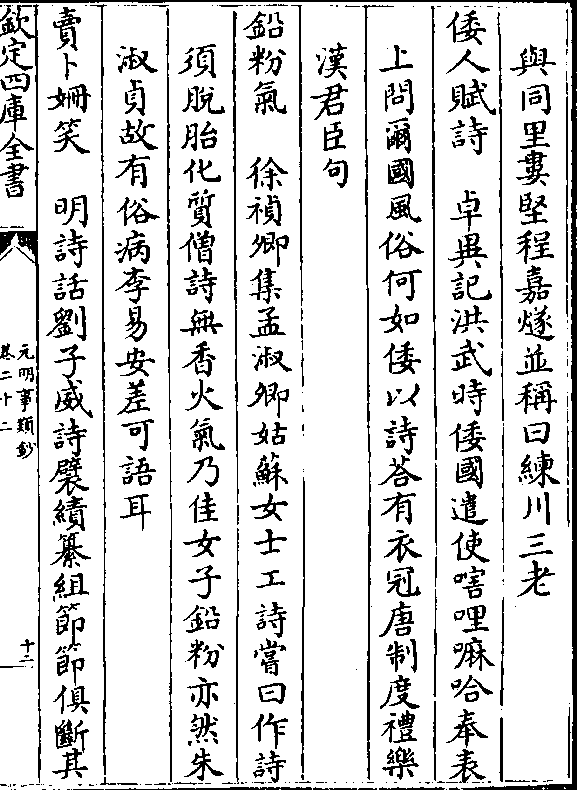 與同里婁堅程嘉燧並稱曰練川三老
倭人賦詩　卓異記洪武時倭國遣使嗐哩嘛哈奉表
上問爾國風俗何如倭以詩荅有衣冠唐制度禮樂
漢君臣句
鉛粉氣　徐禎卿集孟淑卿姑蘇女士工詩嘗曰作詩
須脫胎化質僧詩無香火氣乃佳女子鉛粉亦然朱
淑貞故有俗病李易安差可語耳
賣卜姍笑　明詩話劉子威詩襞績纂組節節俱斷其
欽定四庫全書
元明事類鈔
卷二十二
十二